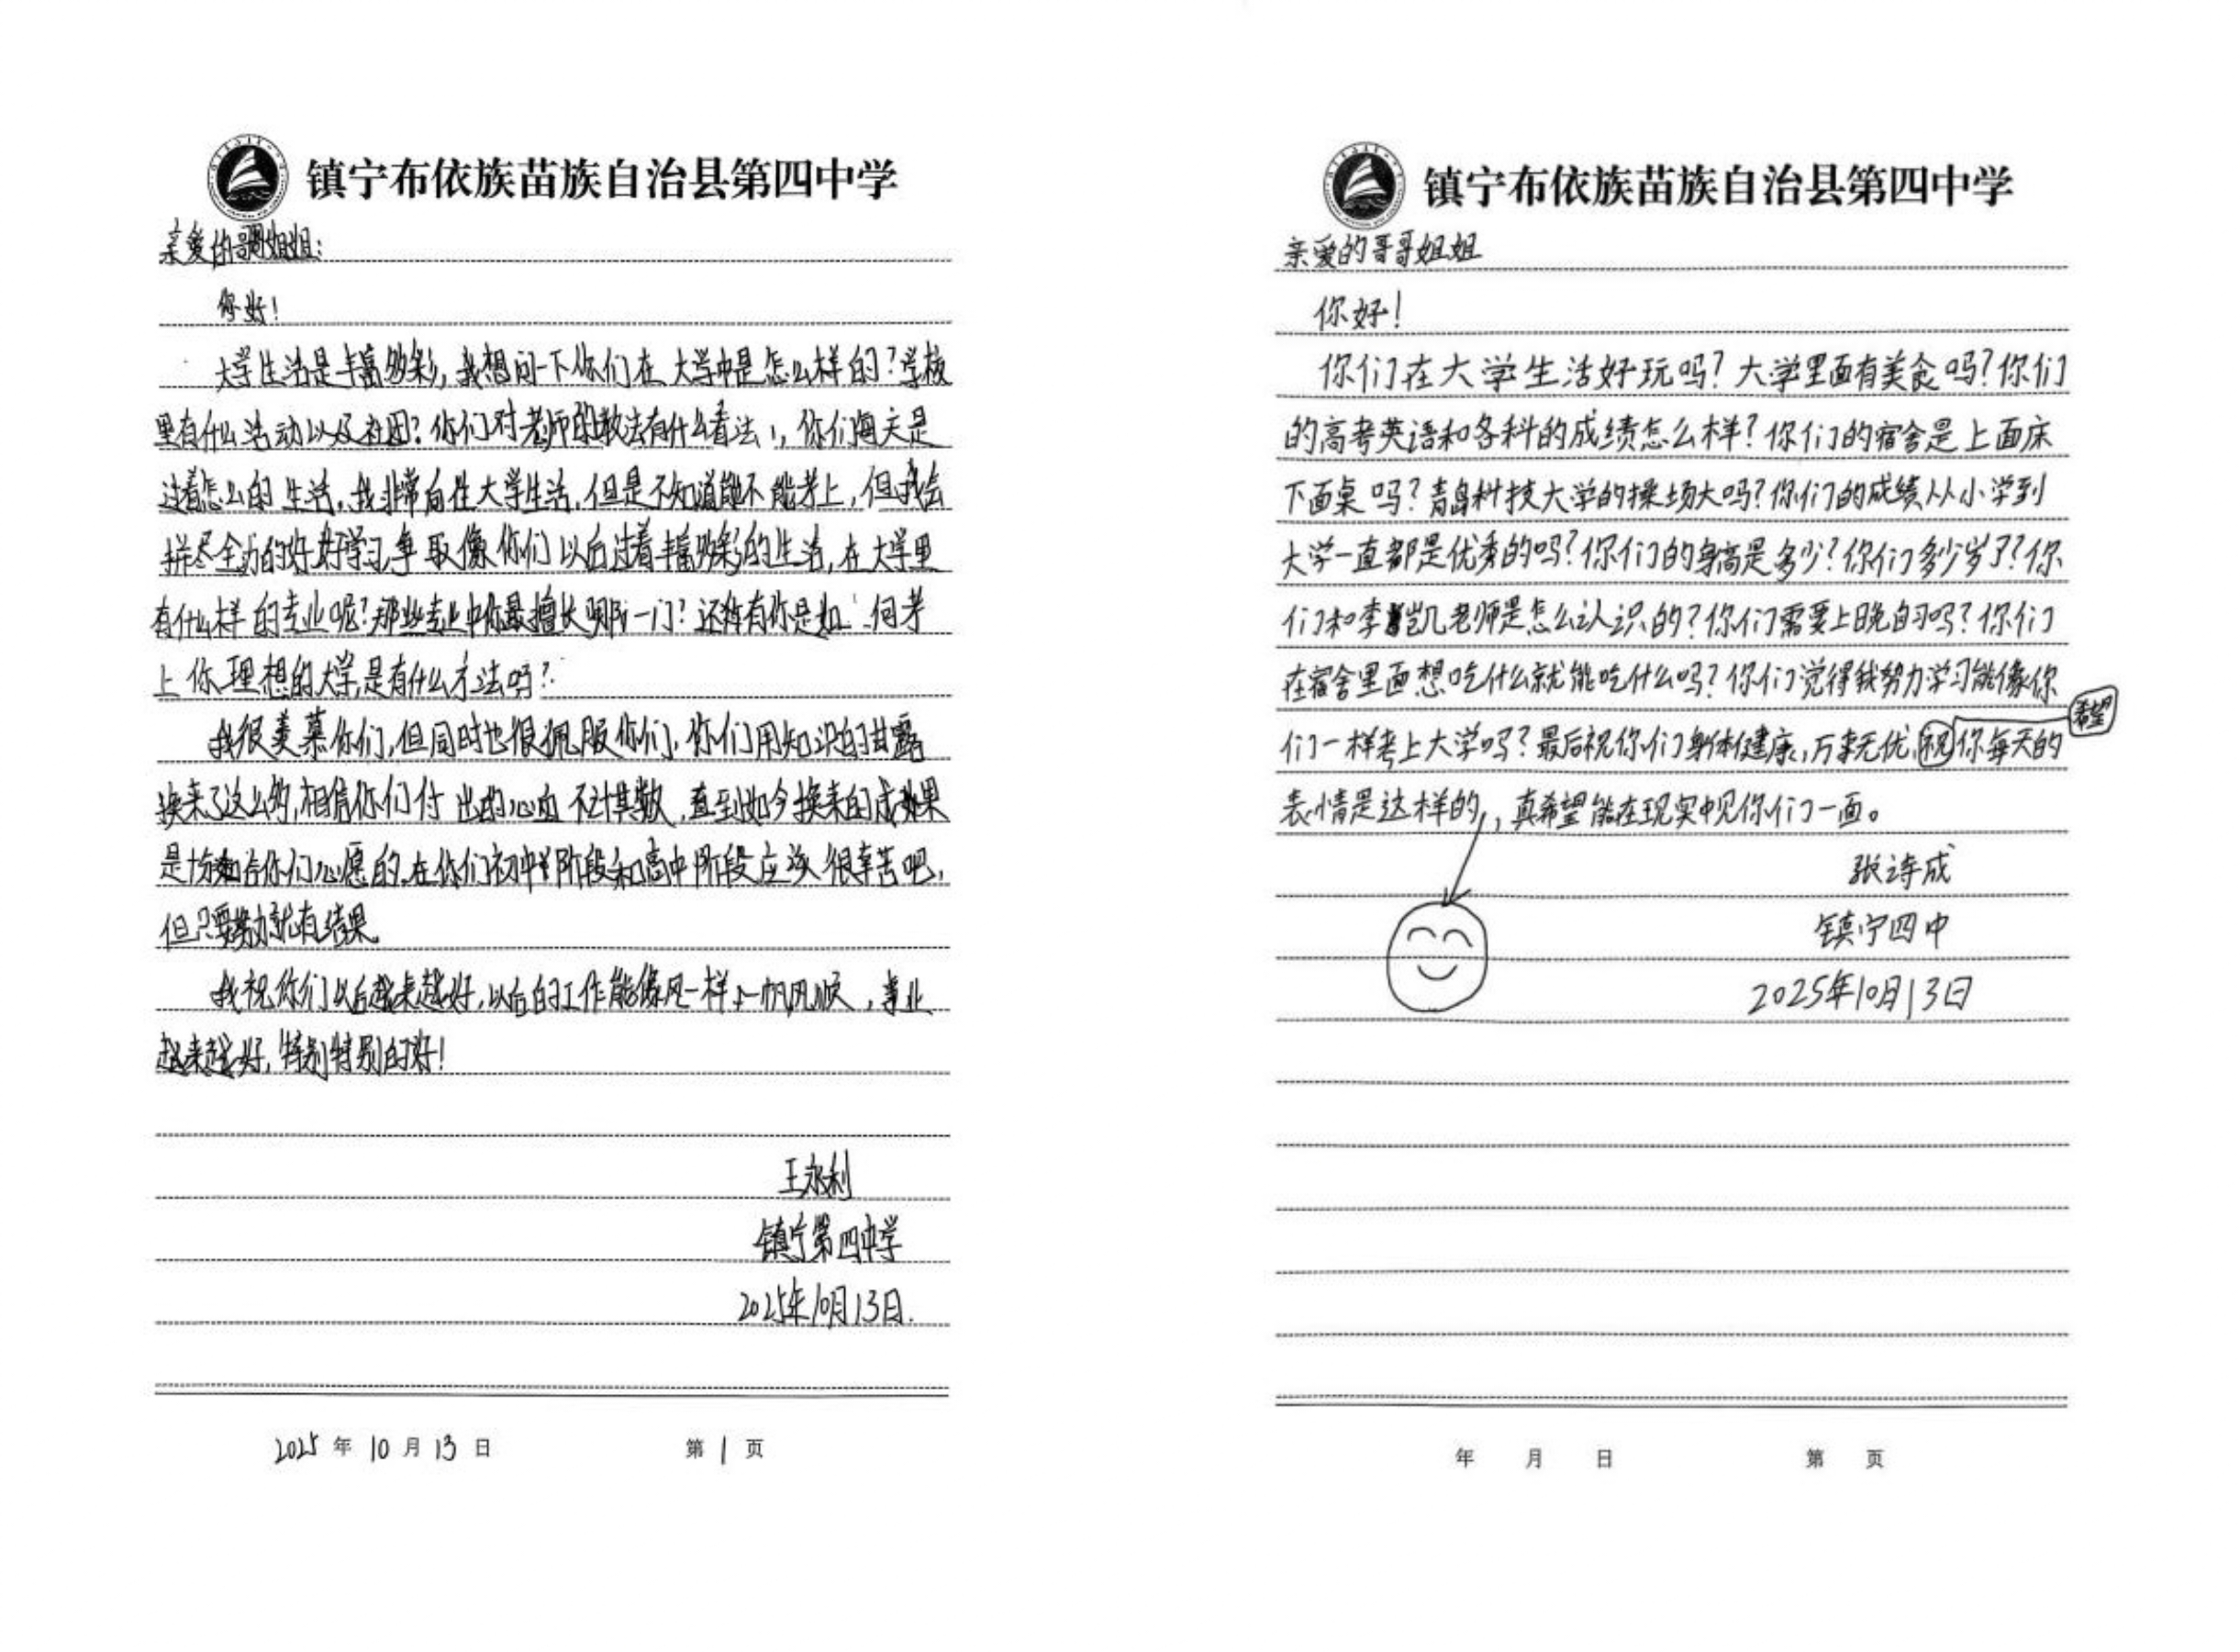 镇宁布依族苗族自治县第四中学
亲爱的哥哥姐姐:
你好!
大学生活是丰富多彩,我想问一下你们在大学中是怎么样的?学校
里有什么活动以及社团?你们对老师的教法有什么看法!,你们每天是
过着怎么的生活,我非常向往大学生活,但是不知道能不能考上,但我会
拼尽全力的好好学习,争取像你们以后过着丰富多彩的生活,在大学里
有什么样的专业呢?那些专业中你最擅长哪一门?还有你是如何考
上你理想的大学,是有什么方法吗?
我很羡慕你们,但同时也很佩服你们,你们用知识的甘露
换来了这么的,相信你们付出的心血不计其数,直到如今换来的成果
是恰如合你们心愿的,在你们初中阶段和高中阶段应该很辛苦吧,
但只要努力就有结果。
我祝你们以后越来越好,以后的工作能像风一样一帆风顺,事业
越来越好,特别特别的好!
王永利
镇宁第四中学
2025年10月13日.
2025年10月13日 第1页
镇宁布依族苗族自治县第四中学
亲爱的哥哥姐姐
你好!
你们在大学生活好玩吗?大学里面有美食吗?你们
的高考英语和各科的成绩怎么样?你们的宿舍是上面床
下面桌吗?青岛科技大学的操场大吗?你们的成绩从小学到
大学一直都是优秀的吗?你们的身高是多少?你们多少岁了?你
们和李凯老师是怎么认识的?你们需要上晚自习吗?你们
在宿舍里面想吃什么就能吃什么吗?你们觉得我努力学习能像你
希望
们一样考上大学吗?最后祝你们身体健康,万事无忧,祝你每天的
表情是这样的,,真希望能在现实中见你们一面。
张诗成
镇宁四中
2025年10月13日
年 月 日 第 页